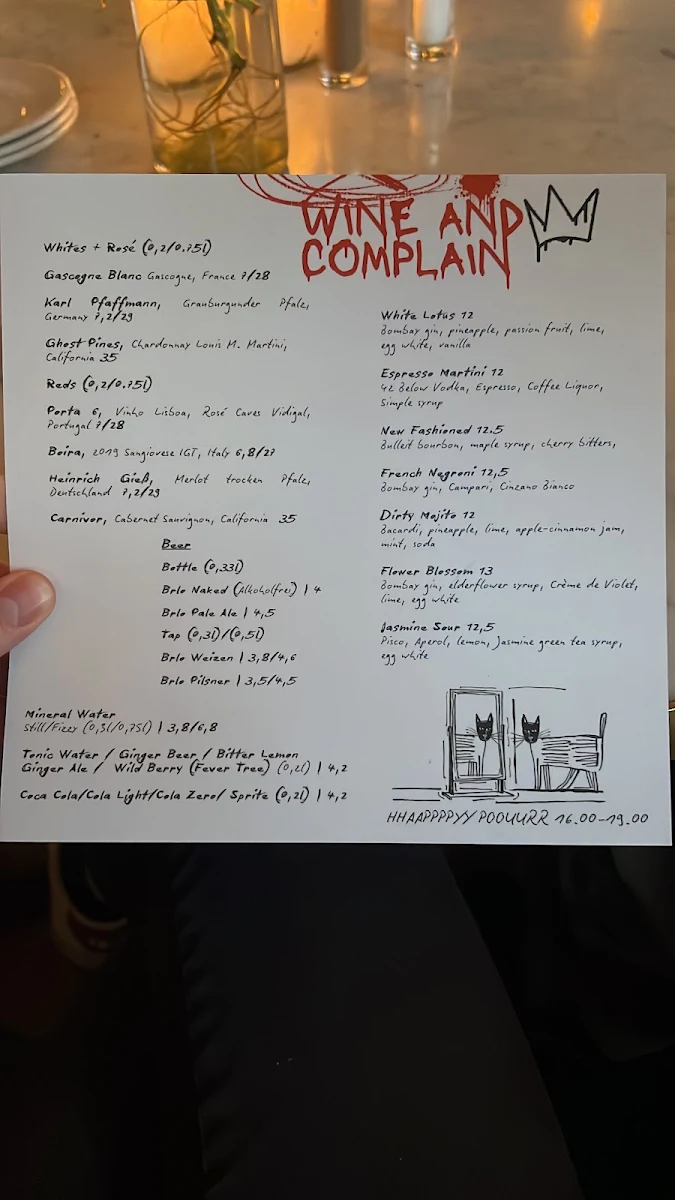 WINE AND
COMPLAIN
Whites + Rosé (0,2/0.75l)
Gascogne Blanc Gascogne, France 7/28
Karl Pfaffmann, Grauburgunder Pfalz,
Germany 7,2/29
Ghost Pines, Chardonnay Louis M. Martini,
California 35
Reds (0,2/0.75l)
Porta 6, Vinho Lisboa, Rosé Caves Vidigal,
Portugal 7/28
Boira, 2019 Sangiovese IGT, Italy 6,8/27
Heinrich Gieß, Merlot trocken Pfalz,
Deutschland 7,2/29
Carnivor, Cabernet Sauvignon, California 35
Beer
Bottle (0,33l)
Brlo Naked (Alkoholfrei) | 4
Brlo Pale Ale | 4,5
Tap (0,3l)/(0,5l)
Brlo Weizen | 3,8/4,6
Brlo Pilsner | 3,5/4,5
Mineral Water
Still/Fizzy (0,3l/0,75l) | 3,8/6,8
Tonic Water / Ginger Beer / Bitter Lemon
Ginger Ale / Wild Berry (Fever Tree) (0,2l) | 4,2
Coca Cola/Cola Light/Cola Zero/ Sprite (0,2l) | 4,2
White Lotus 12
Bombay gin, pineapple, passion fruit, lime,
egg white, vanilla
Espresso Martini 12
42 Below Vodka, Espresso, Coffee Liquor,
Simple syrup
New Fashioned 12.5
Bulleit bourbon, maple syrup, cherry bitters,
French Negroni 12,5
Bombay gin, Campari, Cinzano Bianco
Dirty Mojito 12
Bacardi, pineapple, lime, apple-cinnamon jam,
mint, soda
Flower Blossom 13
Bombay gin, elderflower syrup, Crème de Violet,
lime, egg white
Jasmine Sour 12,5
Pisco, Aperol, lemon, Jasmine green tea syrup,
egg white
HHAAPPPPYY POOUURR 16.00-19.00